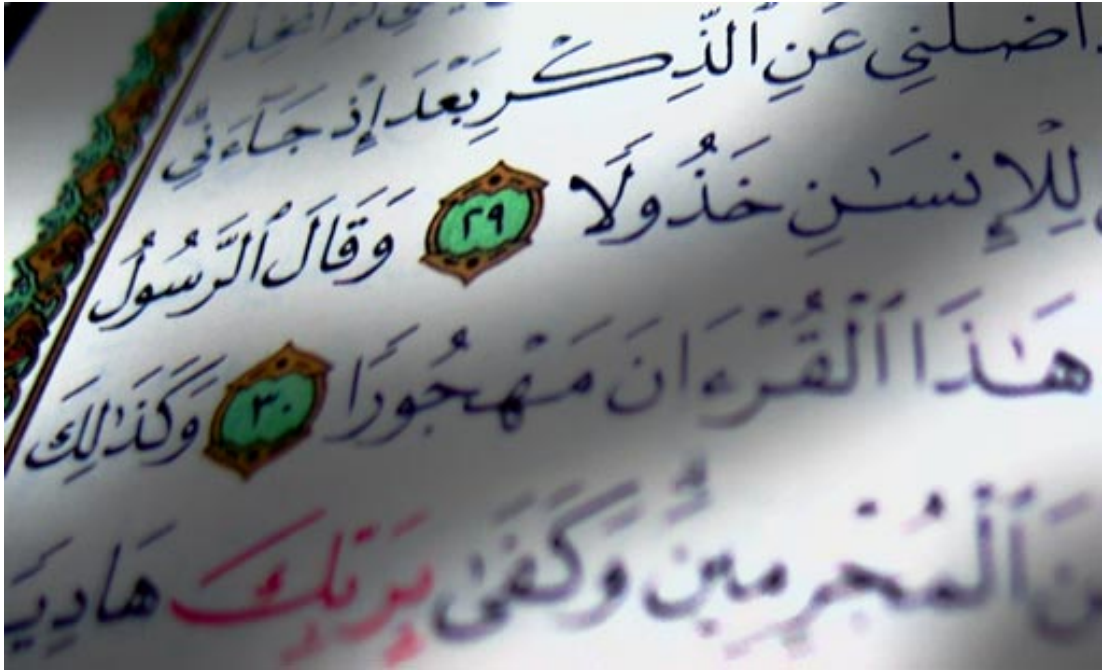 أضلني عَنِ ٱلذِّكْرِ بَعْدَ إِذْ جَآءَنِي
لِلْإِنسَٰنِ خَذُولًا ٢٩ وَقَالَ ٱلرَّسُولُ
هَٰذَا ٱلْقُرْءَانَ مَهْجُورًا ٣٠ وَكَذَٰلِكَ
ٱلْمُجْرِمِينَ وَكَفَىٰ بِرَبِّكَ هَادِيً